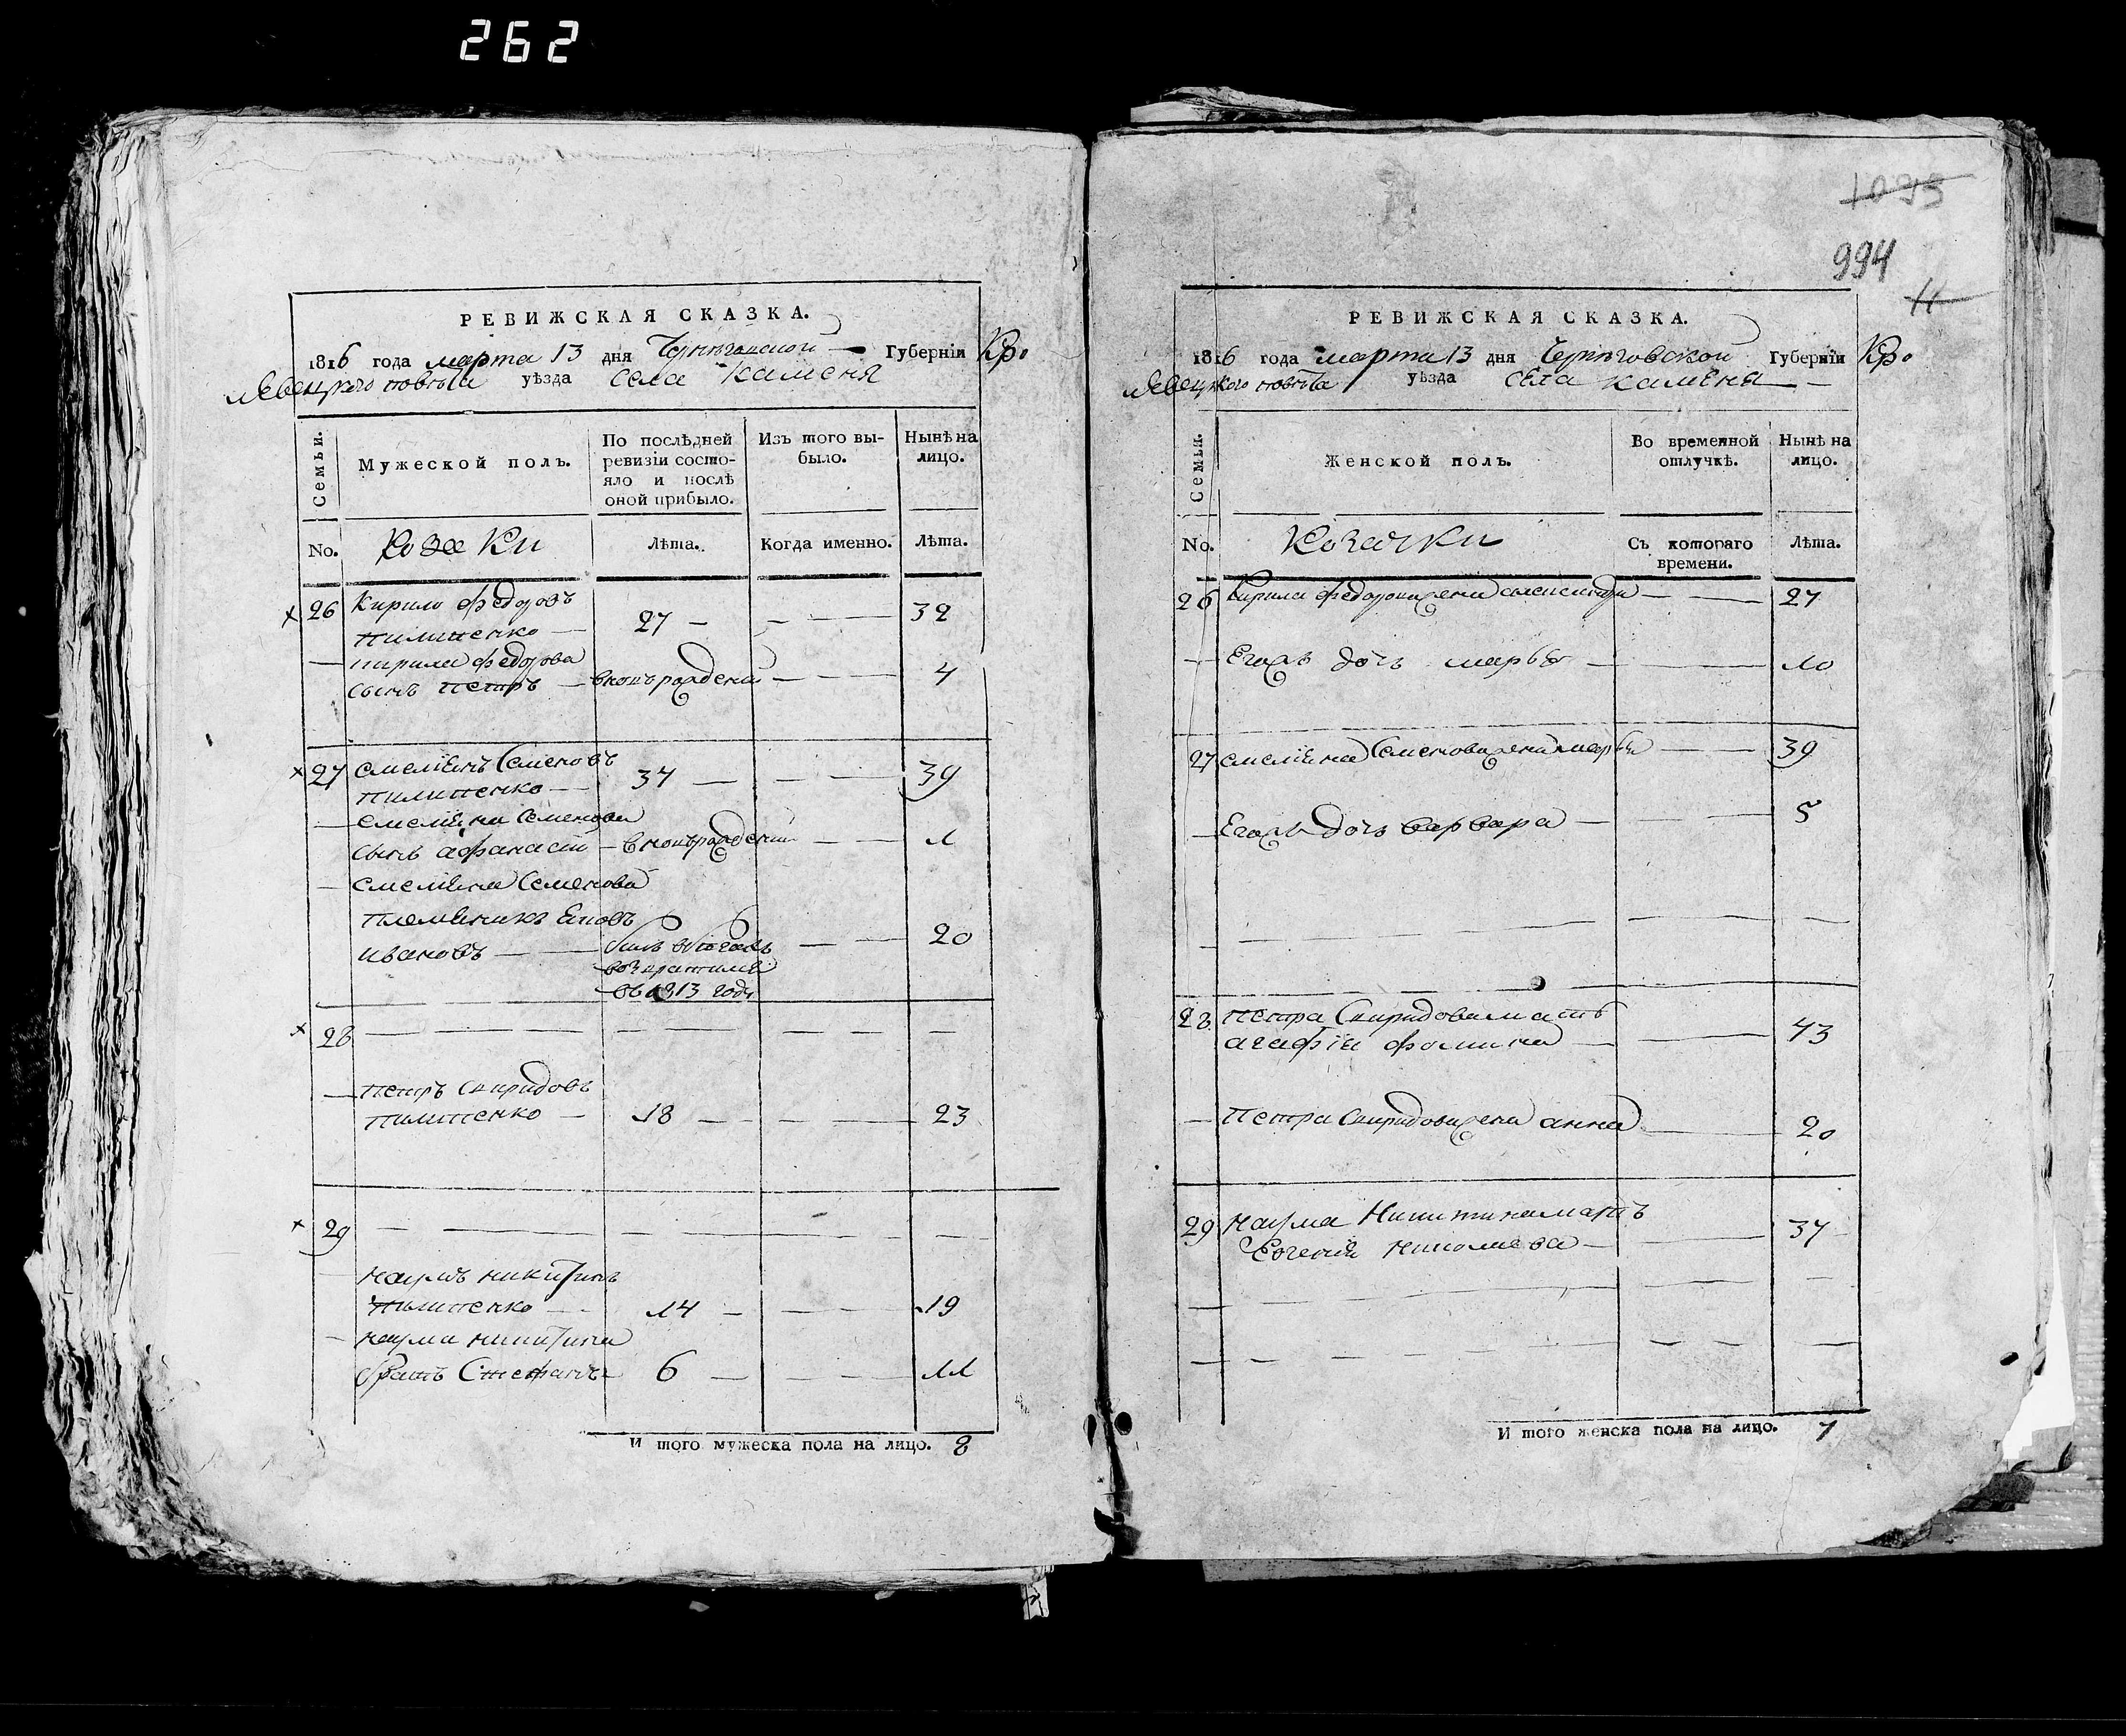 262
РЕВИЖСКАЯ СКАЗКА.
1816 года марта 13 дня Черниговской Губерніи Кро
левецкого повѣта уѣзда села Каменя
Семьи.
Мужеской полъ.
По послѣдней ревизіи состо-
яло и послѣ
оной прибыло.
Изъ того вы-
было.
Нынѣ на
лицо.
No. Козаки Лѣта. Когда именно. Лѣта.
26 Кирило Федоровъ
Пилипенко 27 — — — 32
— Кирила Федорова
сынъ Петръ — вновьрожденій — — 4
27 Емеліянъ Семеновъ
Пилипенко — 37 — — — 39
— Емеліяна Семенова
сынъ Афанасій — вновьрожденій — — 1
— Емеліяна Семенова
племѣникъ
Ивановъ — былъ вбѣгахъ — — 20
возвратился
въ 1813 году
28 — — — —
— Петръ Свиридовъ
Пилипенко — 18 — — — 23
29 — — — —
Наумъ Никитинъ
Пилипенко — 14 — — — 19
— Наума Никитина
братъ Стефанъ 6 — — — 11
И того мужеска пола на лицо. 8
1093
994
11
РЕВИЖСКАЯ СКАЗКА.
1816 года марта 13 дня Черниговской Губерніи Кро
левецкого повѣта уѣзда села Каменя
Семьи.
Женской полъ.
Во временной
отлучкѣ.
Нынѣ на
лицо.
No. Козачки Съ котораго
времени. Лѣта.
26 Кирила Федорова жена — — 27
— Егожъ дочь Марья — — 10
27 Емеліяна Семенова жена Марья — — 39
— Егожъ дочь Варвара — — — 5
28 Петра Свиридова мать
Агафія Фомина — — 43
— Петра Свиридова жена Анна — 20
29 Наума Никитина мать
Евгенія Николаева — — 37
И того женска пола на лицо. 7